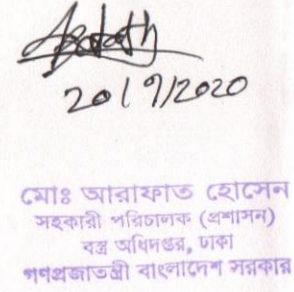 20/9/2020
মোঃ আরাফাত হোসেন
সহকারী পরিচালক (প্রশাসন)
বস্ত্র অধিদপ্তর, ঢাকা
গণপ্রজাতন্ত্রী বাংলাদেশ সরকার